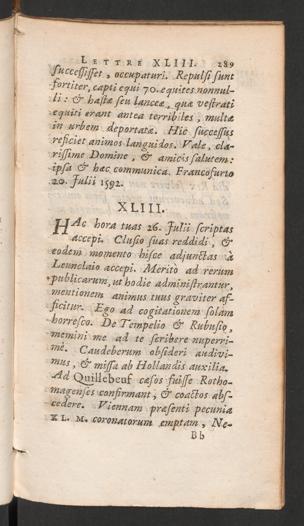 LETTRE XLIII. 289
successisset, occupaturi. Repulsi sunt
fortiter, capti equi 70. equites nonnul-
li: & hastæ seu lanceæ, quæ vestrati
equiti erant antea terribiles, multæ
in urbem deportatæ. Hic successus
reficiet animos languidos. Vale, cla-
rissime Domine, & amicis salutem:
ipsa & hæc communica. Francofurto
20. Julii 1592.
XLIII.
HAc hora tuas 26. Julii scriptas
accepi. Clusio suas reddidi, &
eodem momento hisce adjunctas à
Leunclaio accepi. Meritò ad rerum
publicarum, ut hodie administrantur,
mentionem animus tuus graviter af-
ficitur. Ego ad cogitationem solam
horresco. De Tempelio & Rubusio,
memini me ad te scribere nuperri-
mè. Caudeberum obsideri audivi-
mus, & missa ab Hollandis auxilia.
Ad Quillebeuf cæsos fuisse Rotho-
magenses confirmant, & coactos abs-
cedere. Viennam præsenti pecunia
XL. M. coronatorum emptam, Ne-
Bb